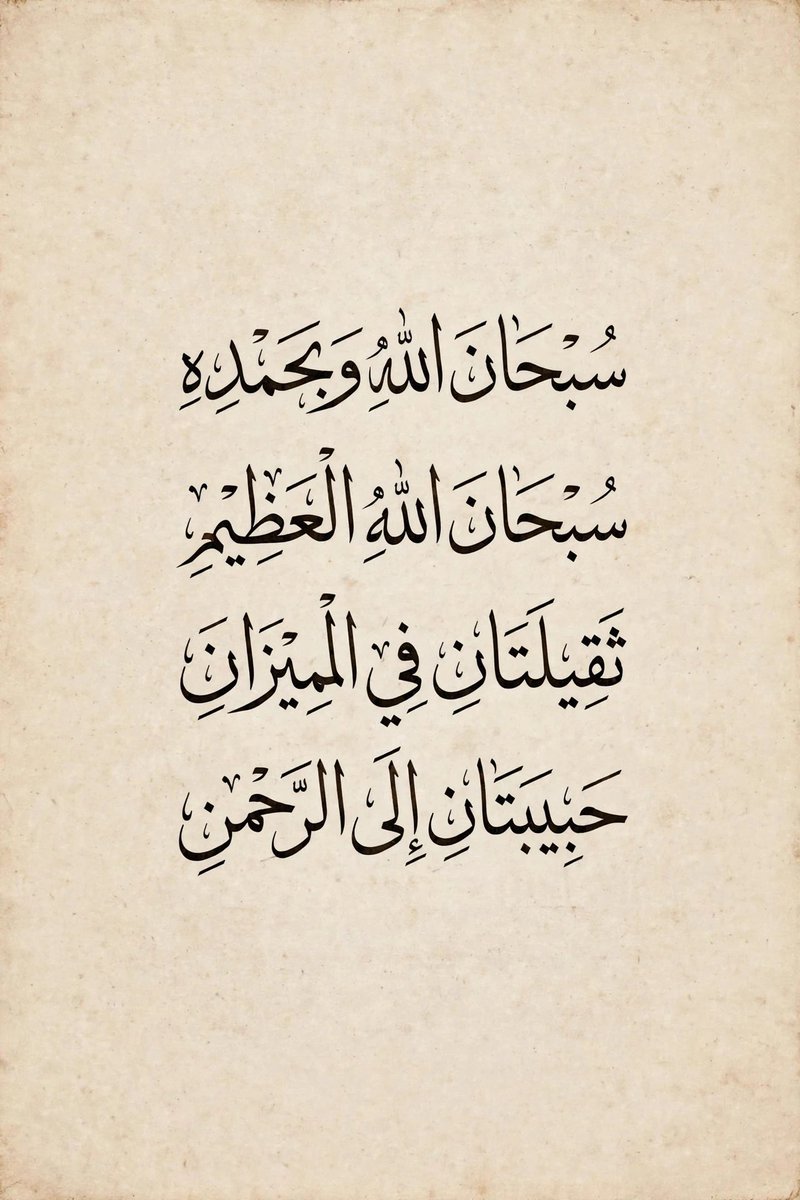 سُبْحَانَ اللهِ وَبِحَمْدِهِ
سُبْحَانَ اللهِ الْعَظِيْمِ
ثَقِيلَتَانِ فِي الْمِيْزَانِ
حَبِيبَتَانِ إِلَى الرَّحْمنِ